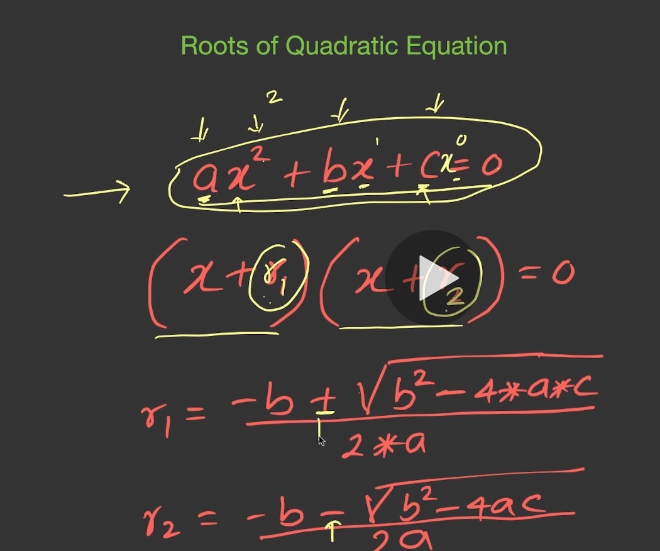 Roots of Quadratic Equation
2
ax² + bx¹ + cx⁰ = 0
(x + r₁) (x + r₂) = 0
r₁ = -b ± √b² - 4*a*c
2*a
r₂ = -b - √b² - 4ac
2a